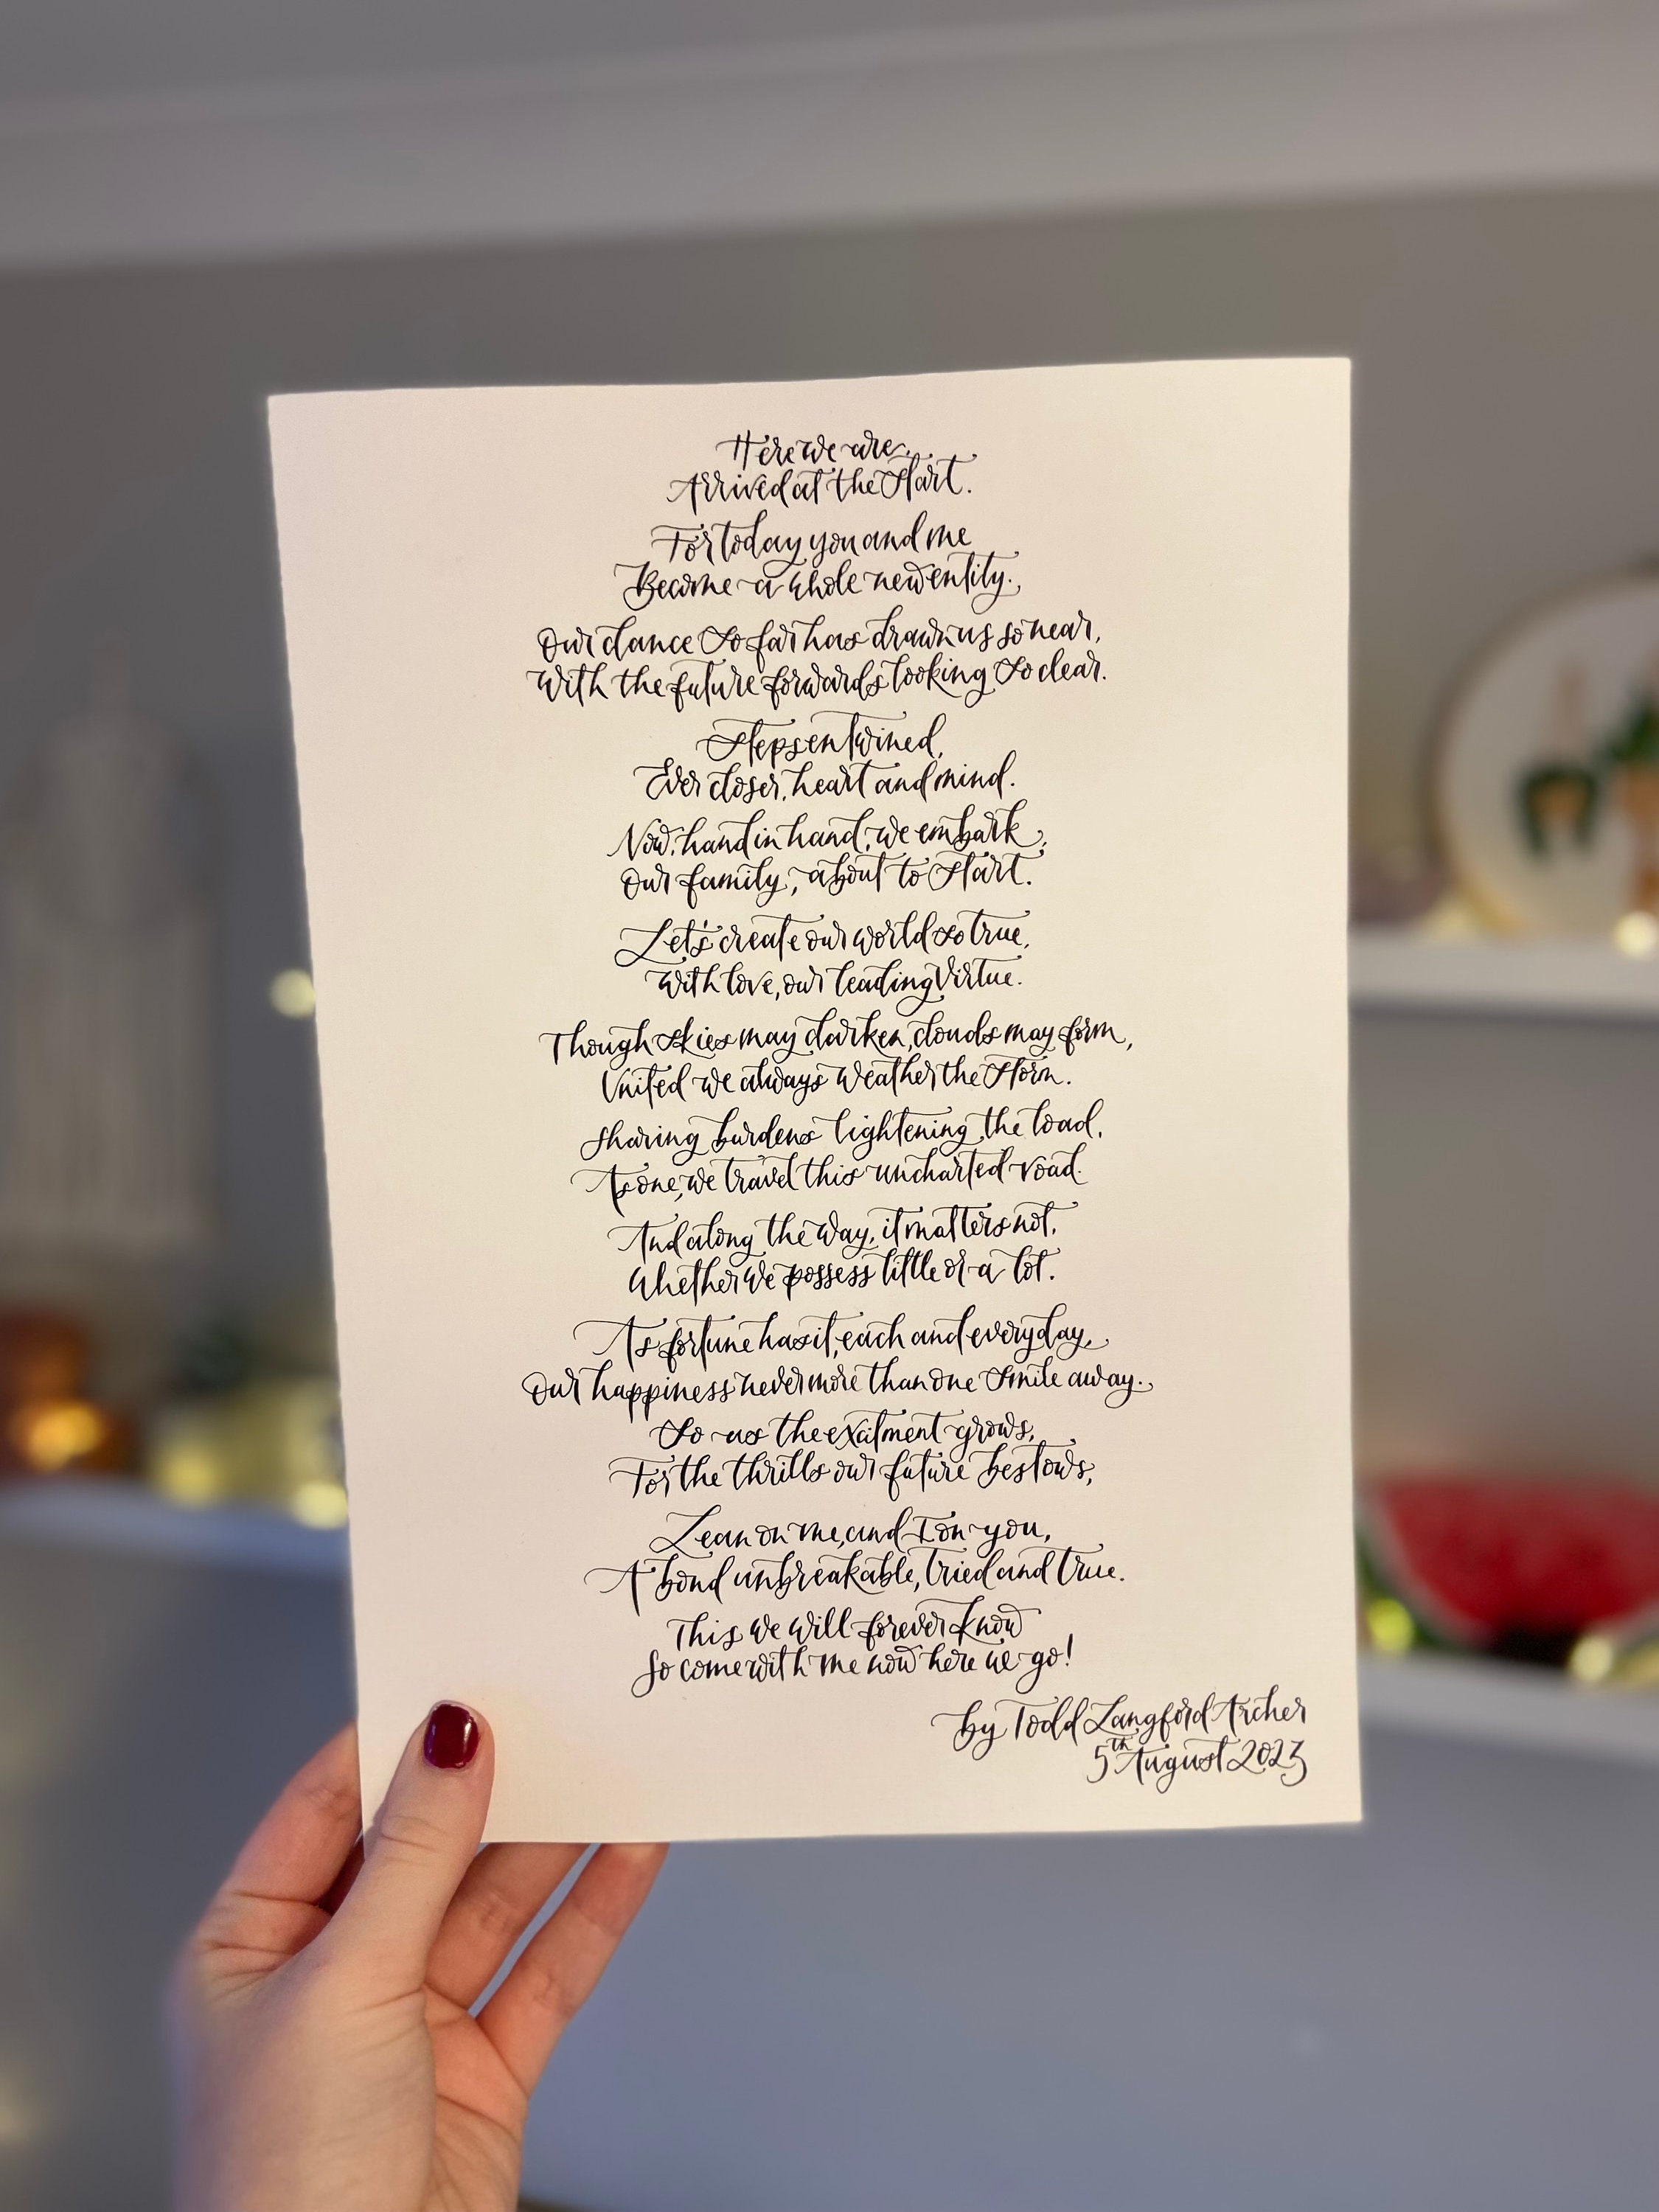 Here we are,
Arrived at the Start.
For today you and me
Become a whole new entity.
Our dance so far has drawn us so near,
With the future forwards looking so clear.
Steps entwined,
Ever closer, heart and mind.
Now, hand in hand, we embark,
Our family, about to start.
Let's create our world so true,
With love, our leading virtue.
Though skies may darken, clouds may form,
United we always weather the storm.
Sharing burdens lightening the load,
As one, we travel this uncharted road.
And along the way, it matters not,
Whether we possess little or a lot.
As fortune has it, each and everyday,
Our happiness never more than one smile away.
So as the excitment grows,
For the thrills our future bestows,
Lean on me, and I on you,
A bond unbreakable, tried and true.
This we will forever know
So come with me now here we go!
by Todd Langford Archer
5th August 2023